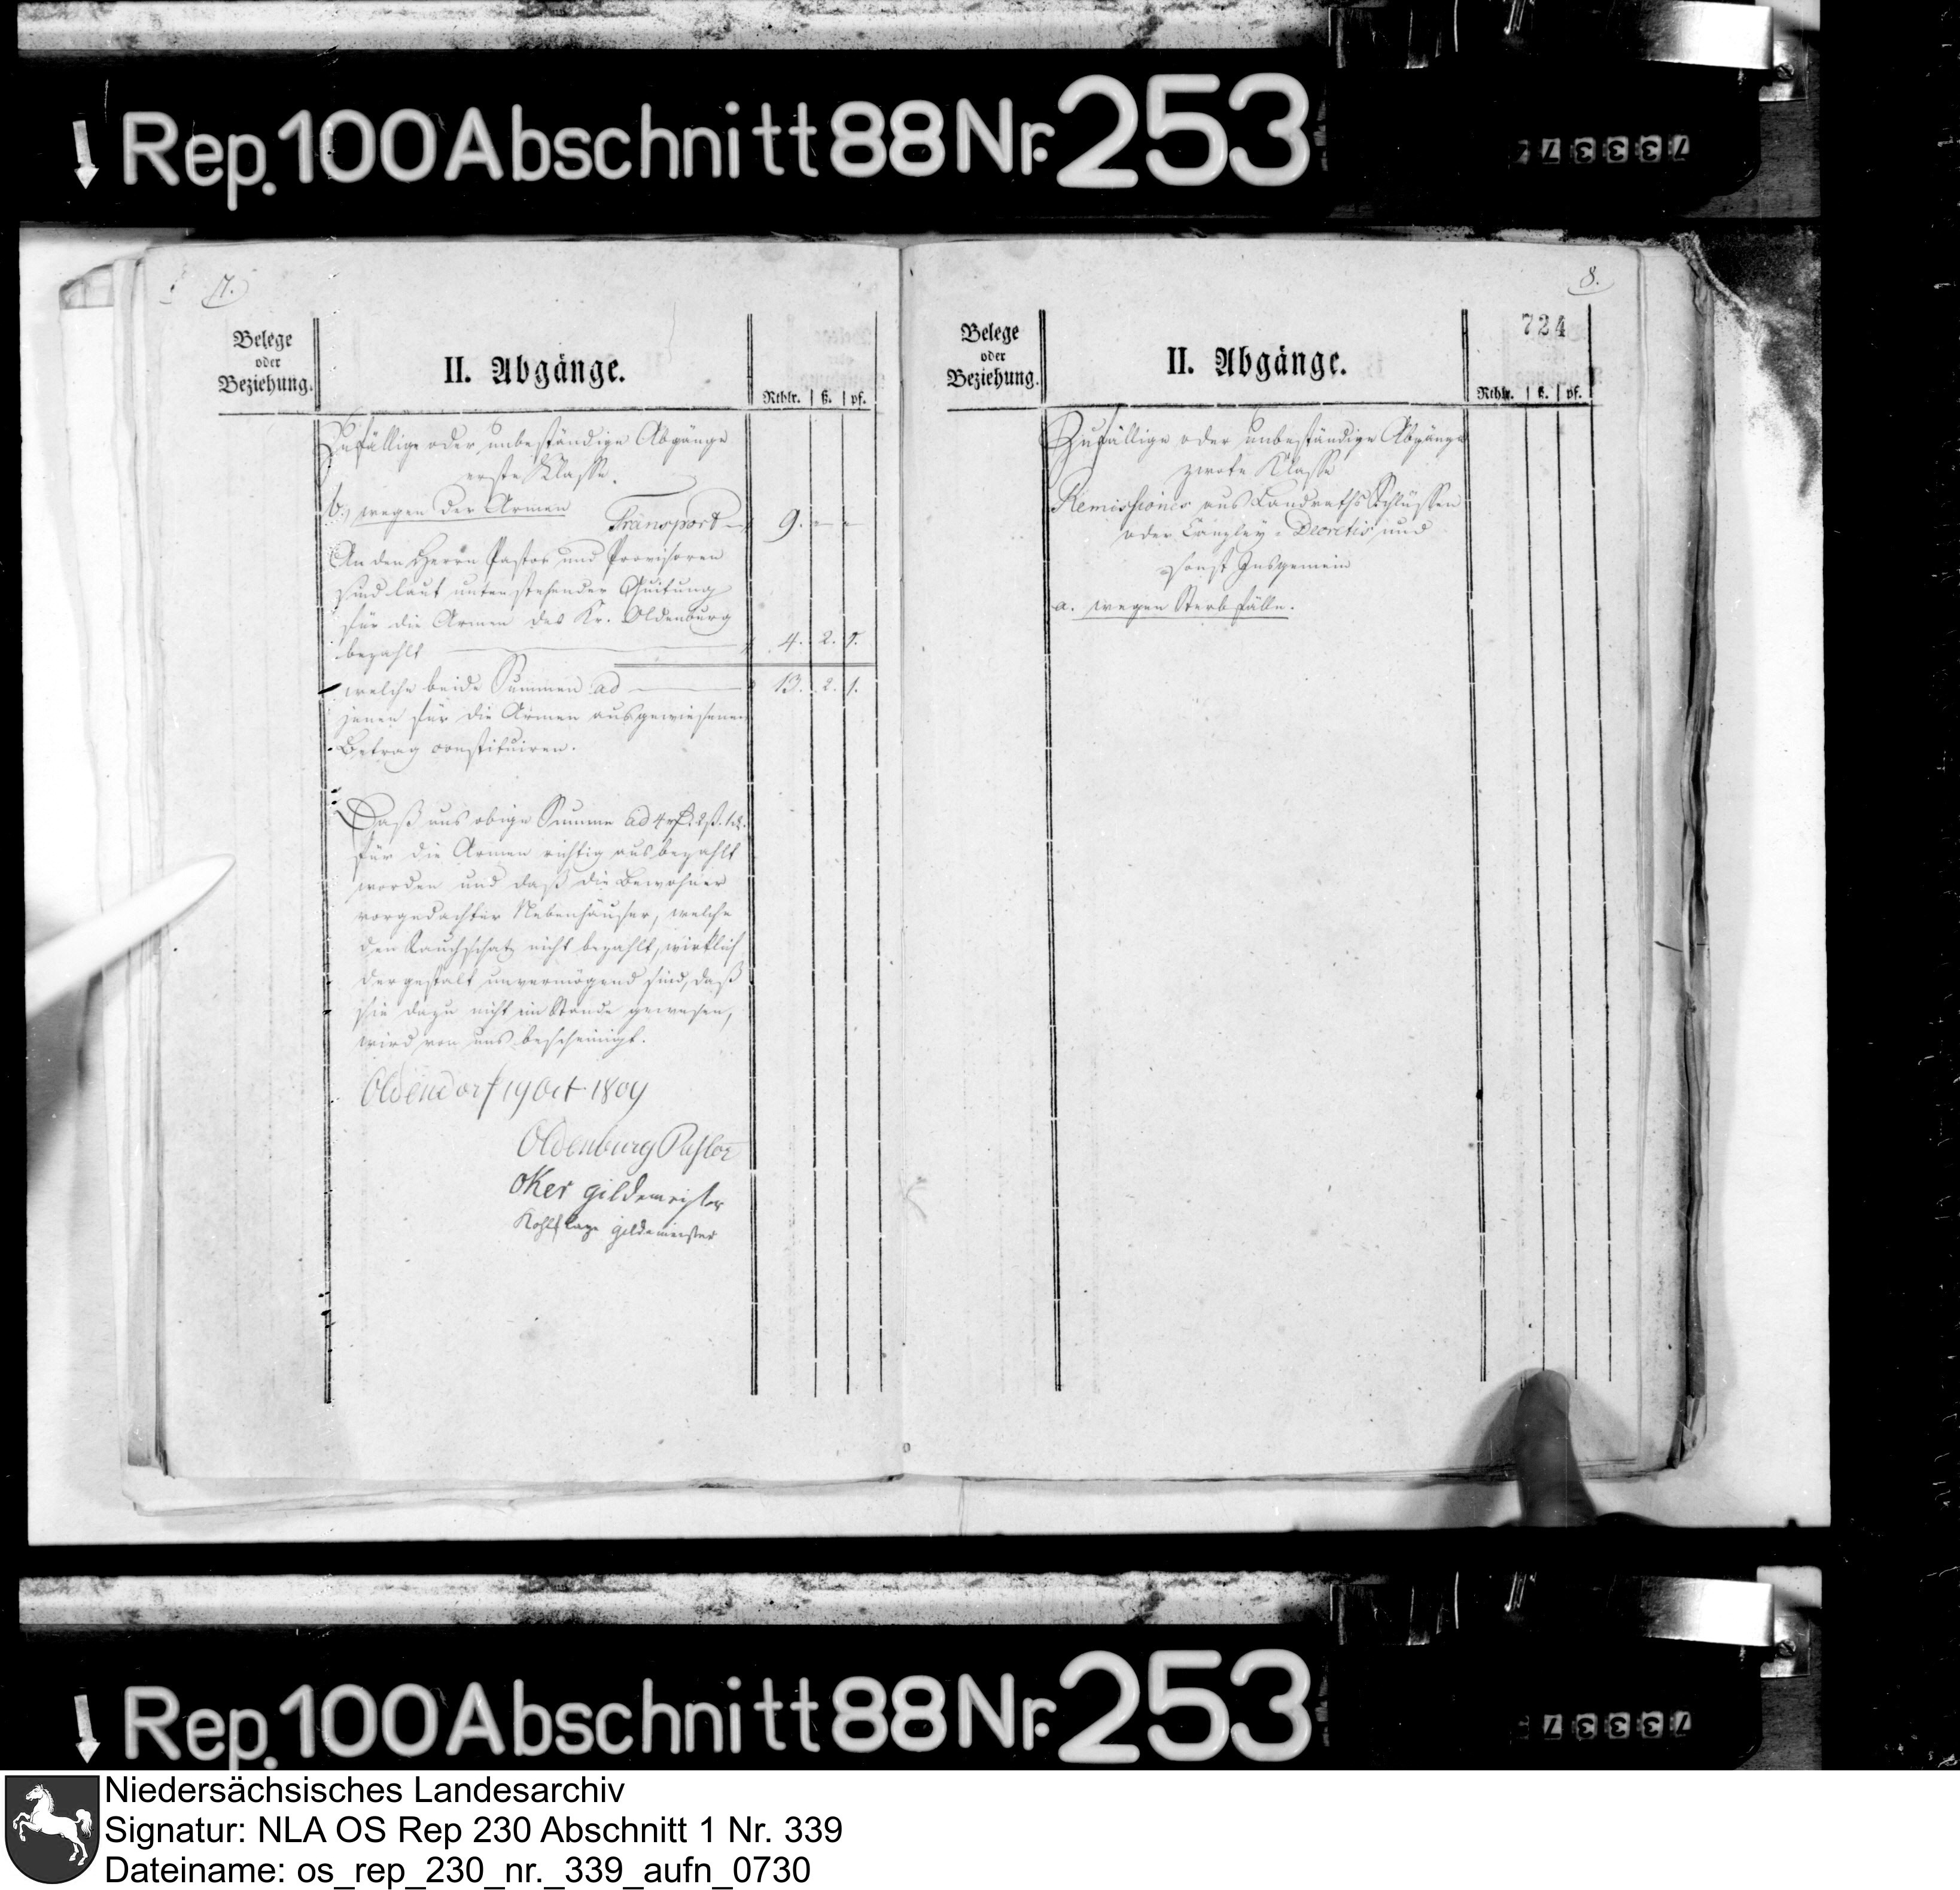 Rep. 100 Abschnitt 88 Nr. 253
733373
7.
Belege
oder
Beziehung.
II. Abgänge.
Rthlr. ß. pf.
Zufällige oder unbeständige Abgänge
erste Klasse.
b., wegen der Armen
Transport 9. - -
An den Herrn Pastor und Provisoren
sind laut untenstehender Quitung
für die Armen des Kr. Oldenburg
bezahlt 4. 2. 1.
welche beide Summen ad 13. 2. 1.
jenen für die Armen ausgewiesenen
Betrag constituiren.
Daß uns obige Summe ad 4 rt. 2 ß. 1 d.
für die Armen richtig ausbezahlt
worden und daß die Bewohner
vorgedachter Nebenhäuser, welche
den Rauchschatz nicht bezahlt, wirklich
dergestalt unvermögend sind, daß
sie dazu nicht im Stande gewesen,
wird von uns bescheinigt.
Oldendorf 19 Oct. 1809
Oldenburg Pastor
oker gildemeister
Kohlflage gildemeister
8.
724
Belege
oder
Beziehung.
II. Abgänge.
Rthlr. ß. pf.
Zufällige oder unbeständige Abgänge
zwote Klasse
Remissiones aus Landraths Schlüssen
oder Canzley-Decretis und
sonst Insgemein
a. wegen Sterbfälle.
Rep. 100 Abschnitt 88 Nr. 253
73337
Niedersächsisches Landesarchiv
Signatur: NLA OS Rep 230 Abschnitt 1 Nr. 339
Dateiname: os_rep_230_nr._339_aufn_0730